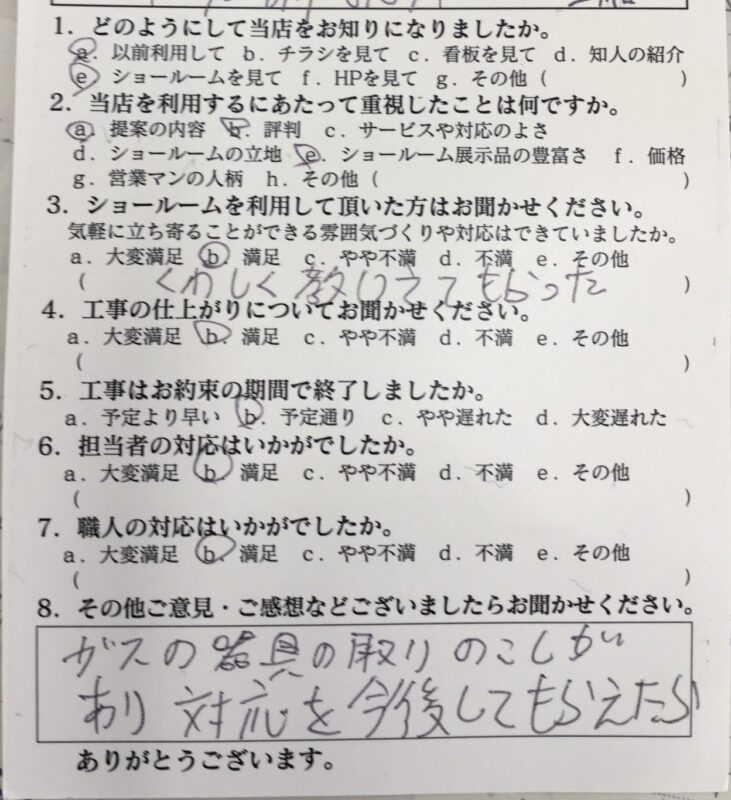 1. どのようにして当店をお知りになりましたか。
a. 以前利用して b. チラシを見て c. 看板を見て d. 知人の紹介
e. ショールームを見て f. HPを見て g. その他 ( )
2. 当店を利用するにあたって重視したことは何ですか。
a. 提案の内容 b. 評判 c. サービスや対応のよさ
d. ショールームの立地 e. ショールーム展示品の豊富さ f. 価格
g. 営業マンの人柄 h. その他 ( )
3. ショールームを利用して頂いた方はお聞かせください。
気軽に立ち寄ることができる雰囲気づくりや対応はできていましたか。
a. 大変満足 b. 満足 c. やや不満 d. 不満 e. その他
( くわしく教えてもらった )
4. 工事の仕上がりについてお聞かせください。
a. 大変満足 b. 満足 c. やや不満 d. 不満 e. その他
( )
5. 工事はお約束の期間で終了しましたか。
a. 予定より早い b. 予定通り c. やや遅れた d. 大変遅れた
6. 担当者の対応はいかがでしたか。
a. 大変満足 b. 満足 c. やや不満 d. 不満 e. その他
( )
7. 職人の対応はいかがでしたか。
a. 大変満足 b. 満足 c. やや不満 d. 不満 e. その他
( )
8. その他ご意見・ご感想などございましたらお聞かせください。
ガスの器具の取りのこしが
あり対応を今後してもらえたら
ありがとうございます。